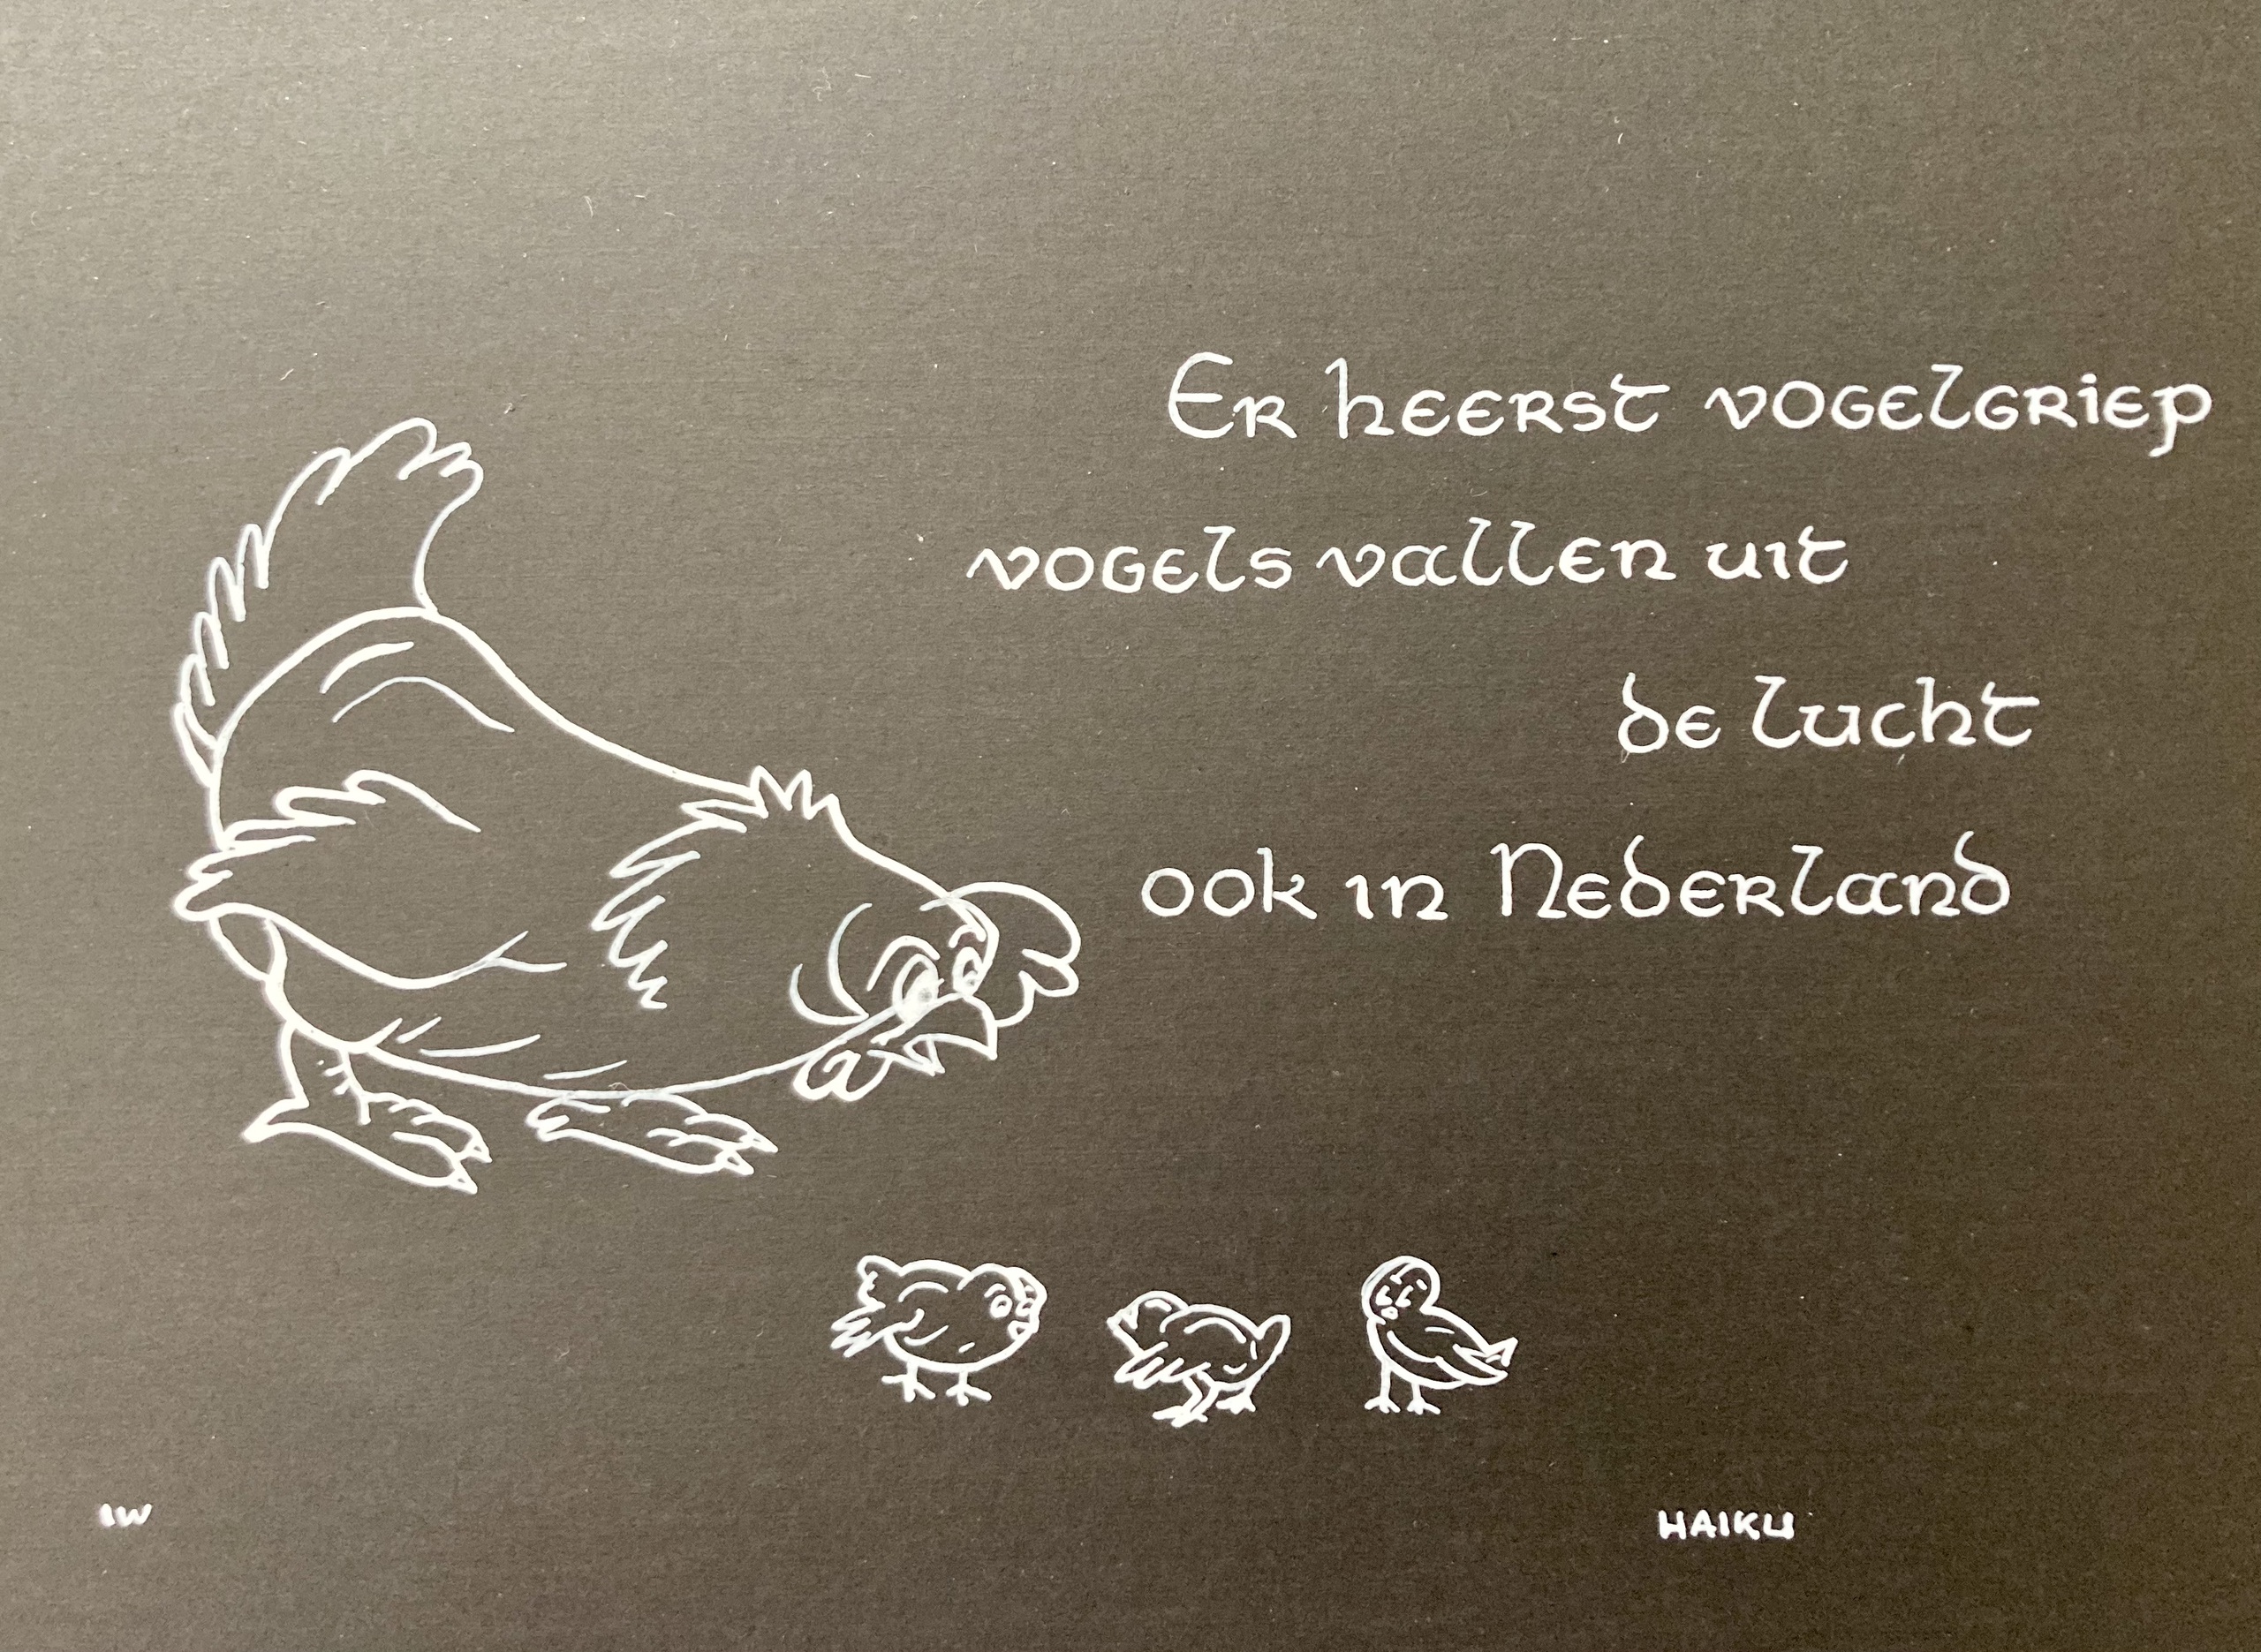 Er heerst vogelgriep
vogels vallen uit
de lucht
ook in Nederland
IW
HAIKU